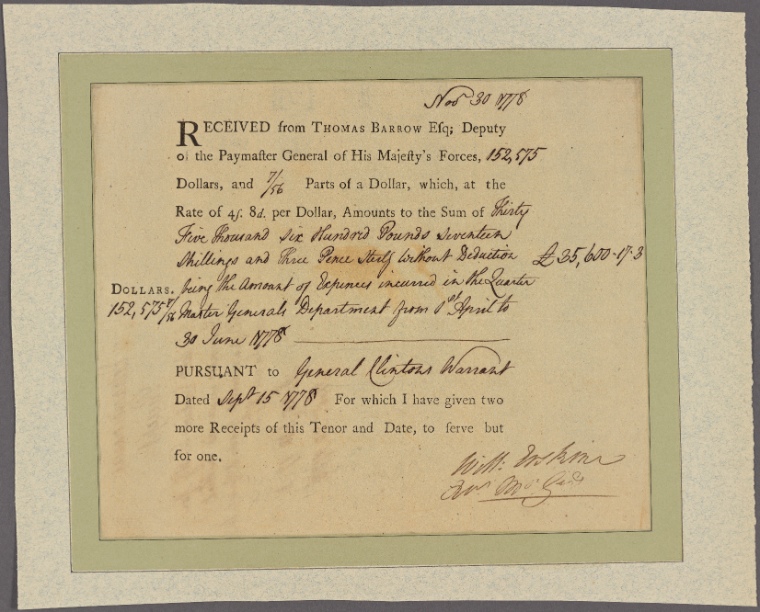 Nov 30 1778
RECEIVED from THOMAS BARROW Esq; Deputy
of the Paymaſter General of His Majeſty's Forces, 152,575
Dollars, and 7/56 Parts of a Dollar, which, at the
Rate of 4ſ. 8d. per Dollar, Amounts to the Sum of Thirty
Five Thousand Six Hundred Pounds Seventeen
Shillings and Three Pence Sterlg Without Deduction £35,600-17-3
being the Amount of Expences incurred in the Quarter
DOLLARS.
152,575 7/56 Master Generals Department from 1st April to
30 June 1778
PURSUANT to General Clintons Warrant
Dated Sept 15 1778 For which I have given two
more Receipts of this Tenor and Date, to ſerve but
for one.
Willm: Erskine
Qr Mr Genl